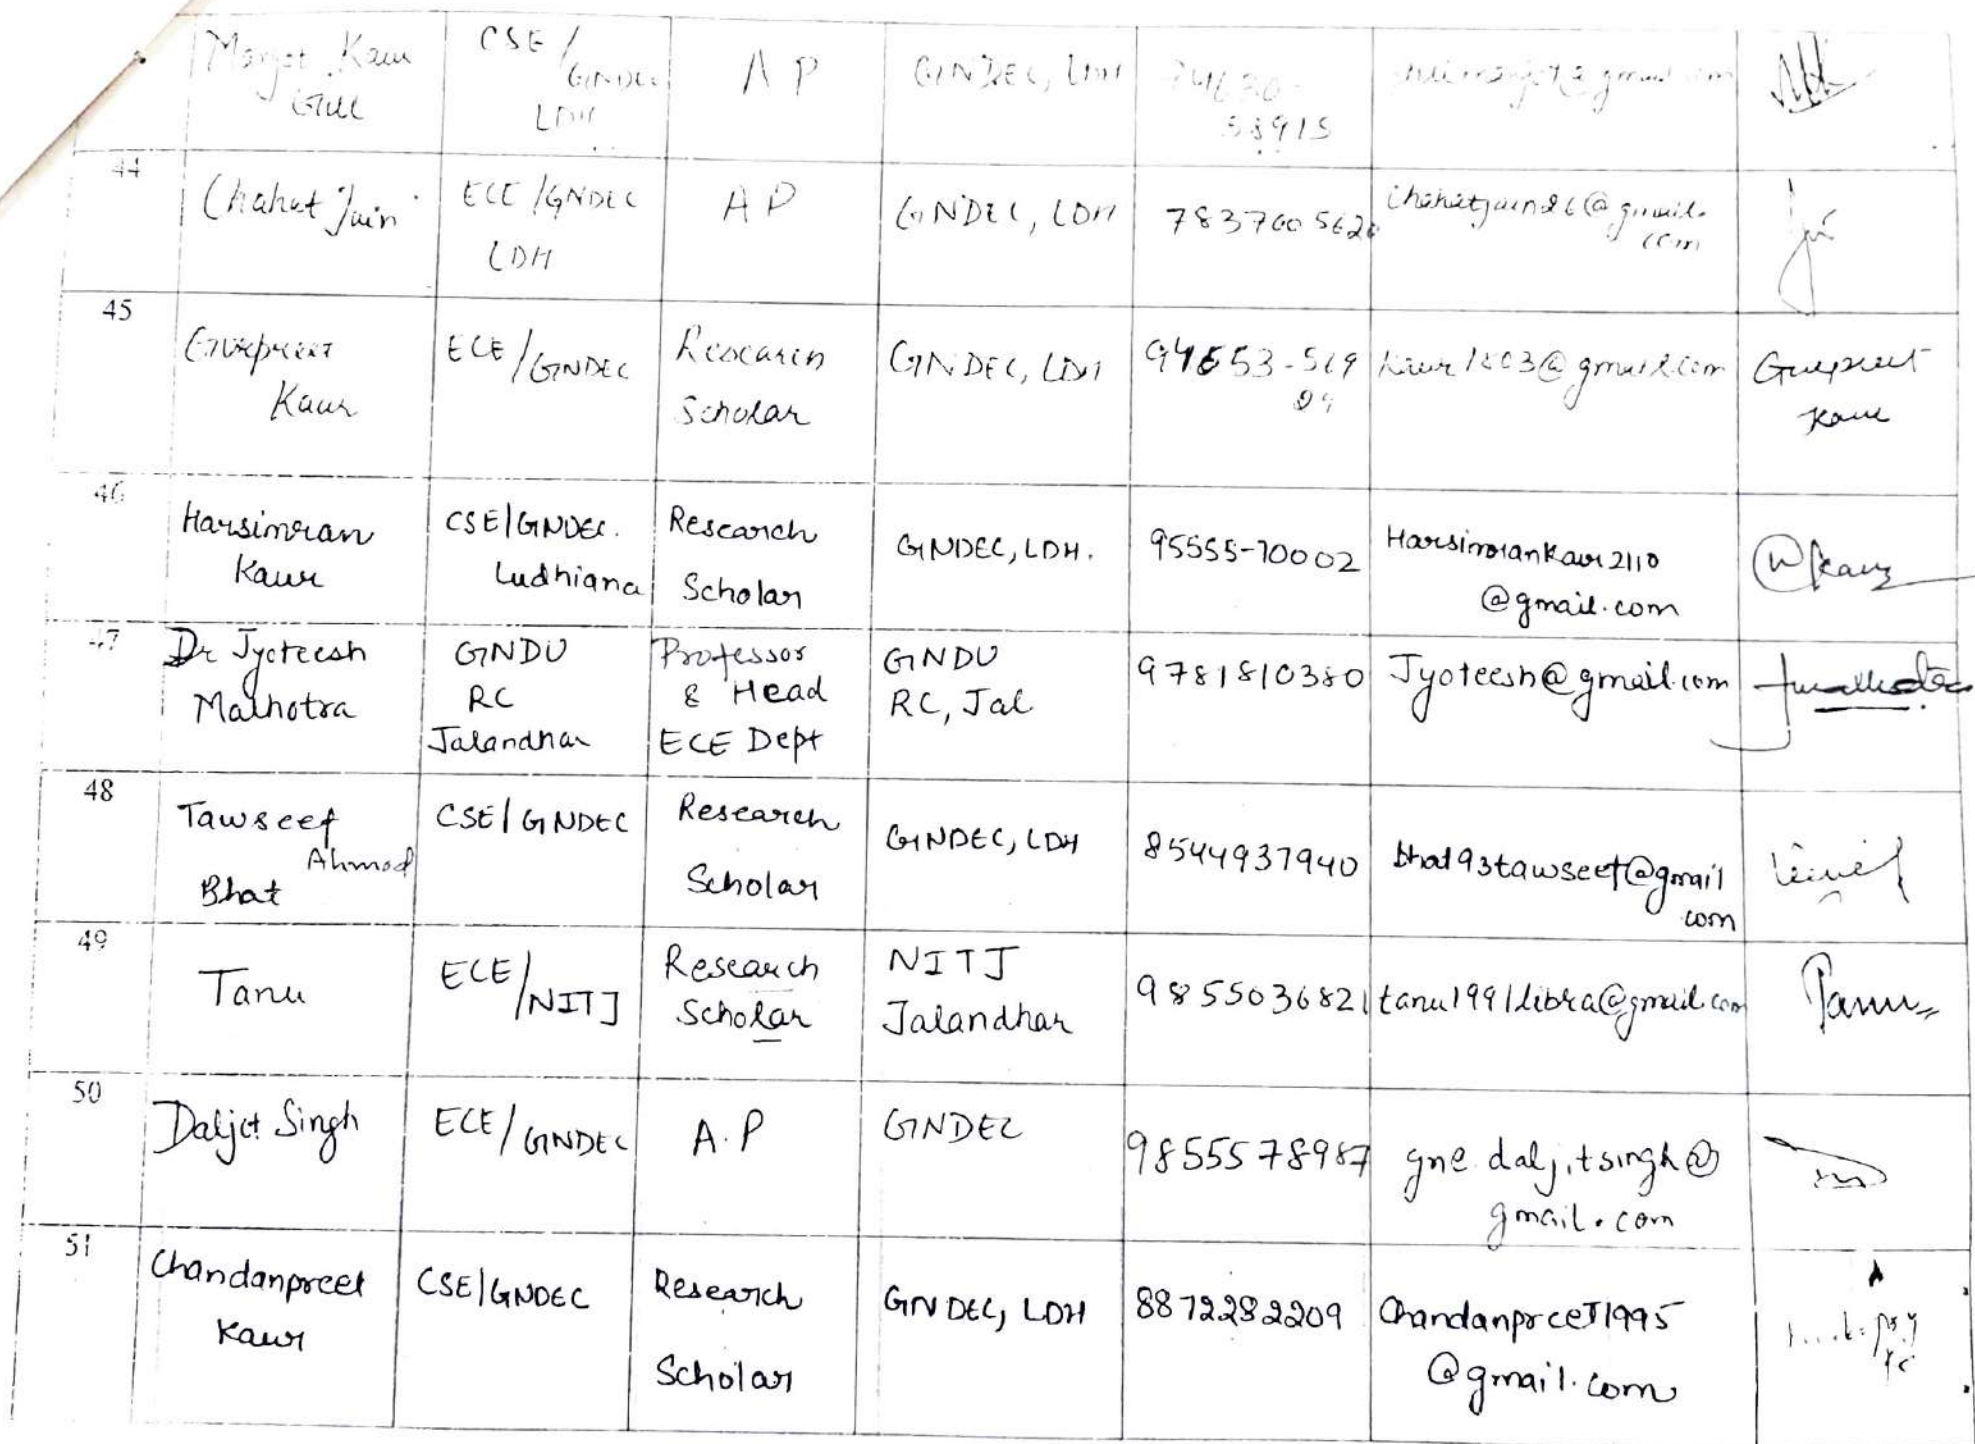 Manjot Kaur
Gill
CSE/
GNDEC
LDH
A P
GNDEC, LDH
58915
44
Chahat Jain
ECE/GNDEC
LDH
A P
GNDEC, LDH
7837605620
chahatjain26@gmail.
com
45
Gurpreet
Kaur
ECE/GNDEC
Research
Scholar
GNDEC, LDH
94653-519
kaur1803@gmail.com
Gurpreet
Kaur
46
Harsimran
Kaur
CSE/GNDEC.
Ludhiana
Research
Scholar
GNDEC, LDH.
95555-70002
Harsimrankaur2110
@gmail.com
47
Dr Jyoteesh
Malhotra
GNDU
RC
Jalandhar
Professor
& Head
ECE Dept
GNDU
RC, Jal
9781810380
Jyoteesh@gmail.com
48
Tawseef
Ahmad
Bhat
CSE/GNDEC
Research
Scholar
GNDEC, LDH
8544937940
bhat93tawseef@gmail
com
49
Tanu
ECE/NITJ
Research
Scholar
NITJ
Jalandhar
9855036821
tanu1991libra@gmail.com
Tanu
50
Daljit Singh
ECE/GNDEC
A.P
GNDEC
9855578987
gne.daljitsingh@
gmail.com
51
Chandanpreet
Kaur
CSE/GNDEC
Research
Scholar
GNDEC, LDH
8872282209
Chandanpreet1995
@gmail.com